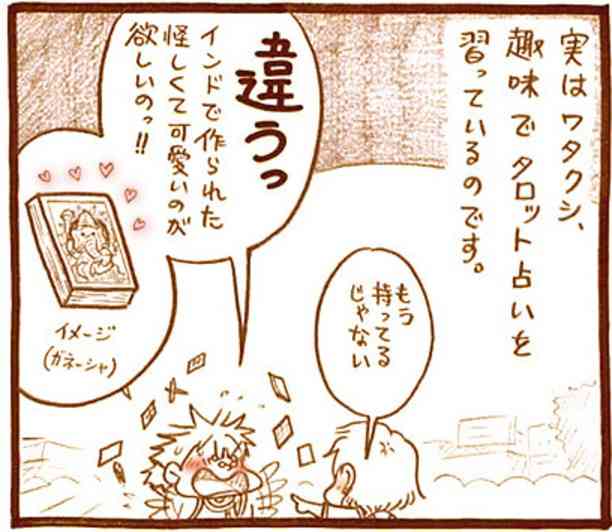 実はワタクシ、
趣味でタロット占いを
習っているのです。
もう
持ってる
じゃない
違うっ
インドで作られた
怪しくて可愛いのが
欲しいのっ!!
イメージ
(ガネーシャ)